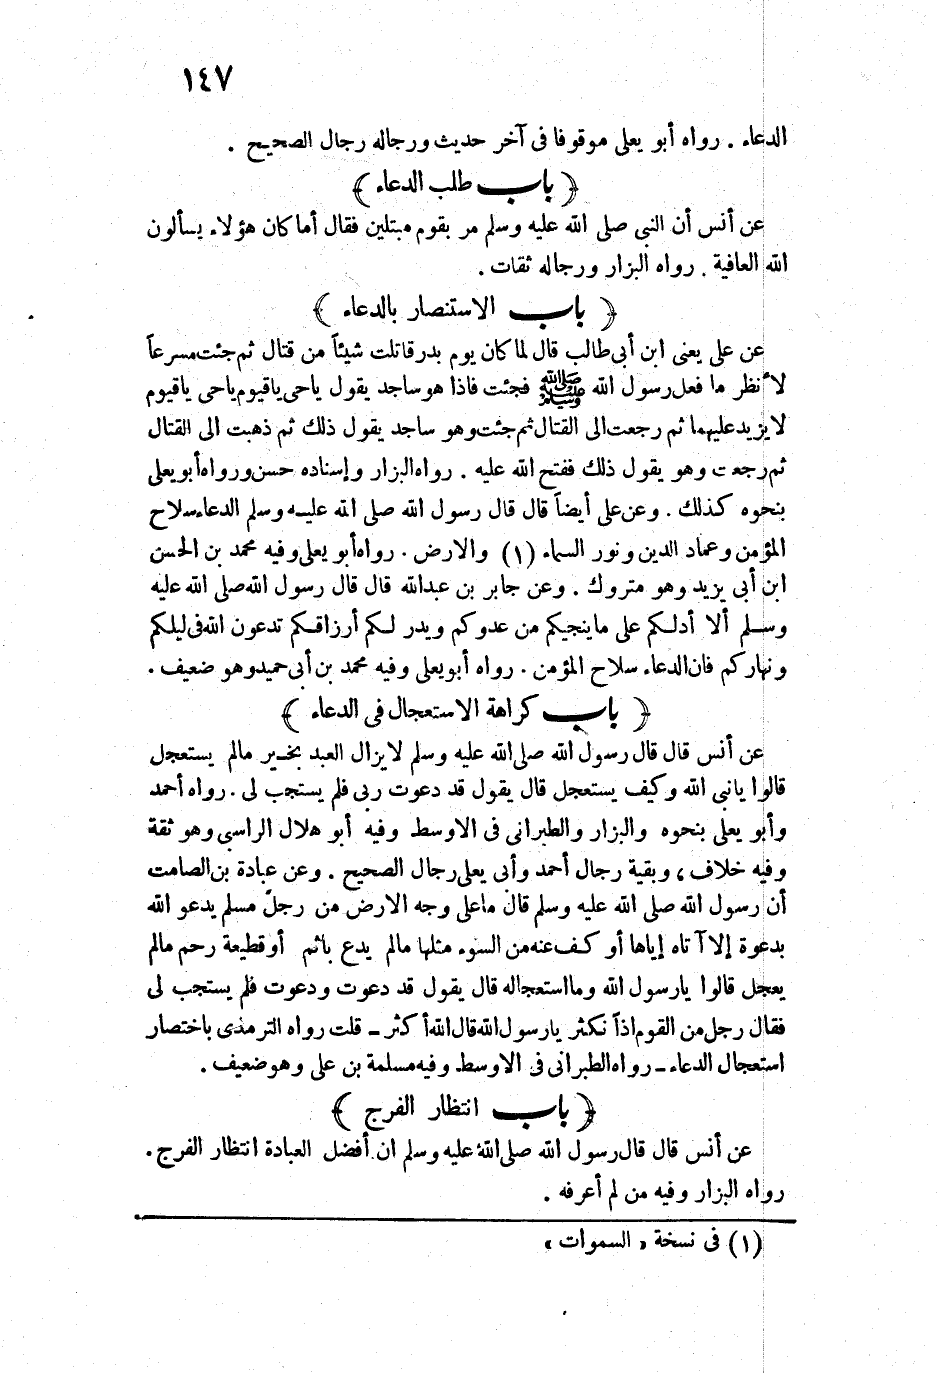 ١٤٧
الدعاء . رواه أبو يعلى موقوفا فى آخر حديث ورجاله رجال الصحيح .
﴿ باب طلب الدعاء ﴾
عن أنس أن النبى صلى الله عليه وسلم مر بقوم مبتلين فقال أما كان هؤلاء يسألون
الله العافية . رواه البزار ورجاله ثقات .
﴿ باب الاستنصار بالدعاء ﴾
عن على يعنى ابن أبى طالب قال لما كان يوم بدر قاتلت شيئاً من قتال ثم جئت مسرعاً
لأنظر ما فعل رسول الله ﷺ فجئت فاذا هو ساجد يقول ياحى ياقيوم ياحى ياقيوم
لا يزيد عليهما ثم رجعت الى القتال ثم جئت وهو ساجد يقول ذلك ثم ذهبت الى القتال
ثم رجعت وهو يقول ذلك ففتح الله عليه . رواه البزار وإسناده حسن ورواه أبو يعلى
بنحوه كذلك . وعن على أيضاً قال قال رسول الله صلى الله عليه وسلم الدعاء سلاح
المؤمن وعماد الدين ونور السماء (١) والارض . رواه أبو يعلى وفيه محمد بن الحسن
ابن أبى يزيد وهو متروك . وعن جابر بن عبدالله قال قال رسول الله صلى الله عليه
وسلم ألا أدلكم على ما ينجيكم من عدوكم ويدر لكم أرزاقكم تدعون الله فى ليلكم
ونهاركم فان الدعاء سلاح المؤمن . رواه أبو يعلى وفيه محمد بن أبى حميد وهو ضعيف .
﴿ باب كراهة الاستعجال فى الدعاء ﴾
عن أنس قال قال رسول الله صلى الله عليه وسلم لا يزال العبد بخير مالم يستعجل
قالوا يا نبى الله وكيف يستعجل قال يقول قد دعوت ربى فلم يستجب لى . رواه أحمد
وأبو يعلى بنحوه والبزار والطبرانى فى الاوسط وفيه أبو هلال الراسبى وهو ثقة
وفيه خلاف ، وبقية رجال أحمد وأبى يعلى رجال الصحيح . وعن عبادة بن الصامت
أن رسول الله صلى الله عليه وسلم قال ما على وجه الارض من رجل مسلم يدعو الله
بدعوة إلا آتاه إياها أو كف عنه من السوء مثلها مالم يدع باثم أو قطيعة رحم مالم
يعجل قالوا يارسول الله وما استعجاله قال يقول قد دعوت ودعوت فلم يستجب لى
فقال رجل من القوم اذاً نكثر يارسول الله قال الله أكثر ـ قلت رواه الترمذى باختصار
استعجال الدعاء ـ رواه الطبرانى فى الاوسط وفيه مسلمة بن على وهو ضعيف .
﴿ باب انتظار الفرج ﴾
عن أنس قال قال رسول الله صلى الله عليه وسلم ان أفضل العبادة انتظار الفرج .
رواه البزار وفيه من لم أعرفه .
(١) فى نسخة « السموات »